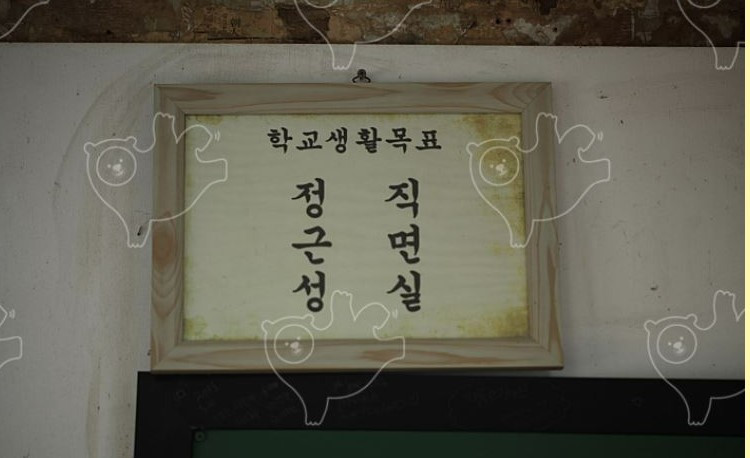 학교생활목표
정직
근면
성실